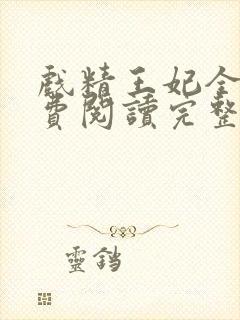 戲精王妃全
費閱讀完整
靈鐺